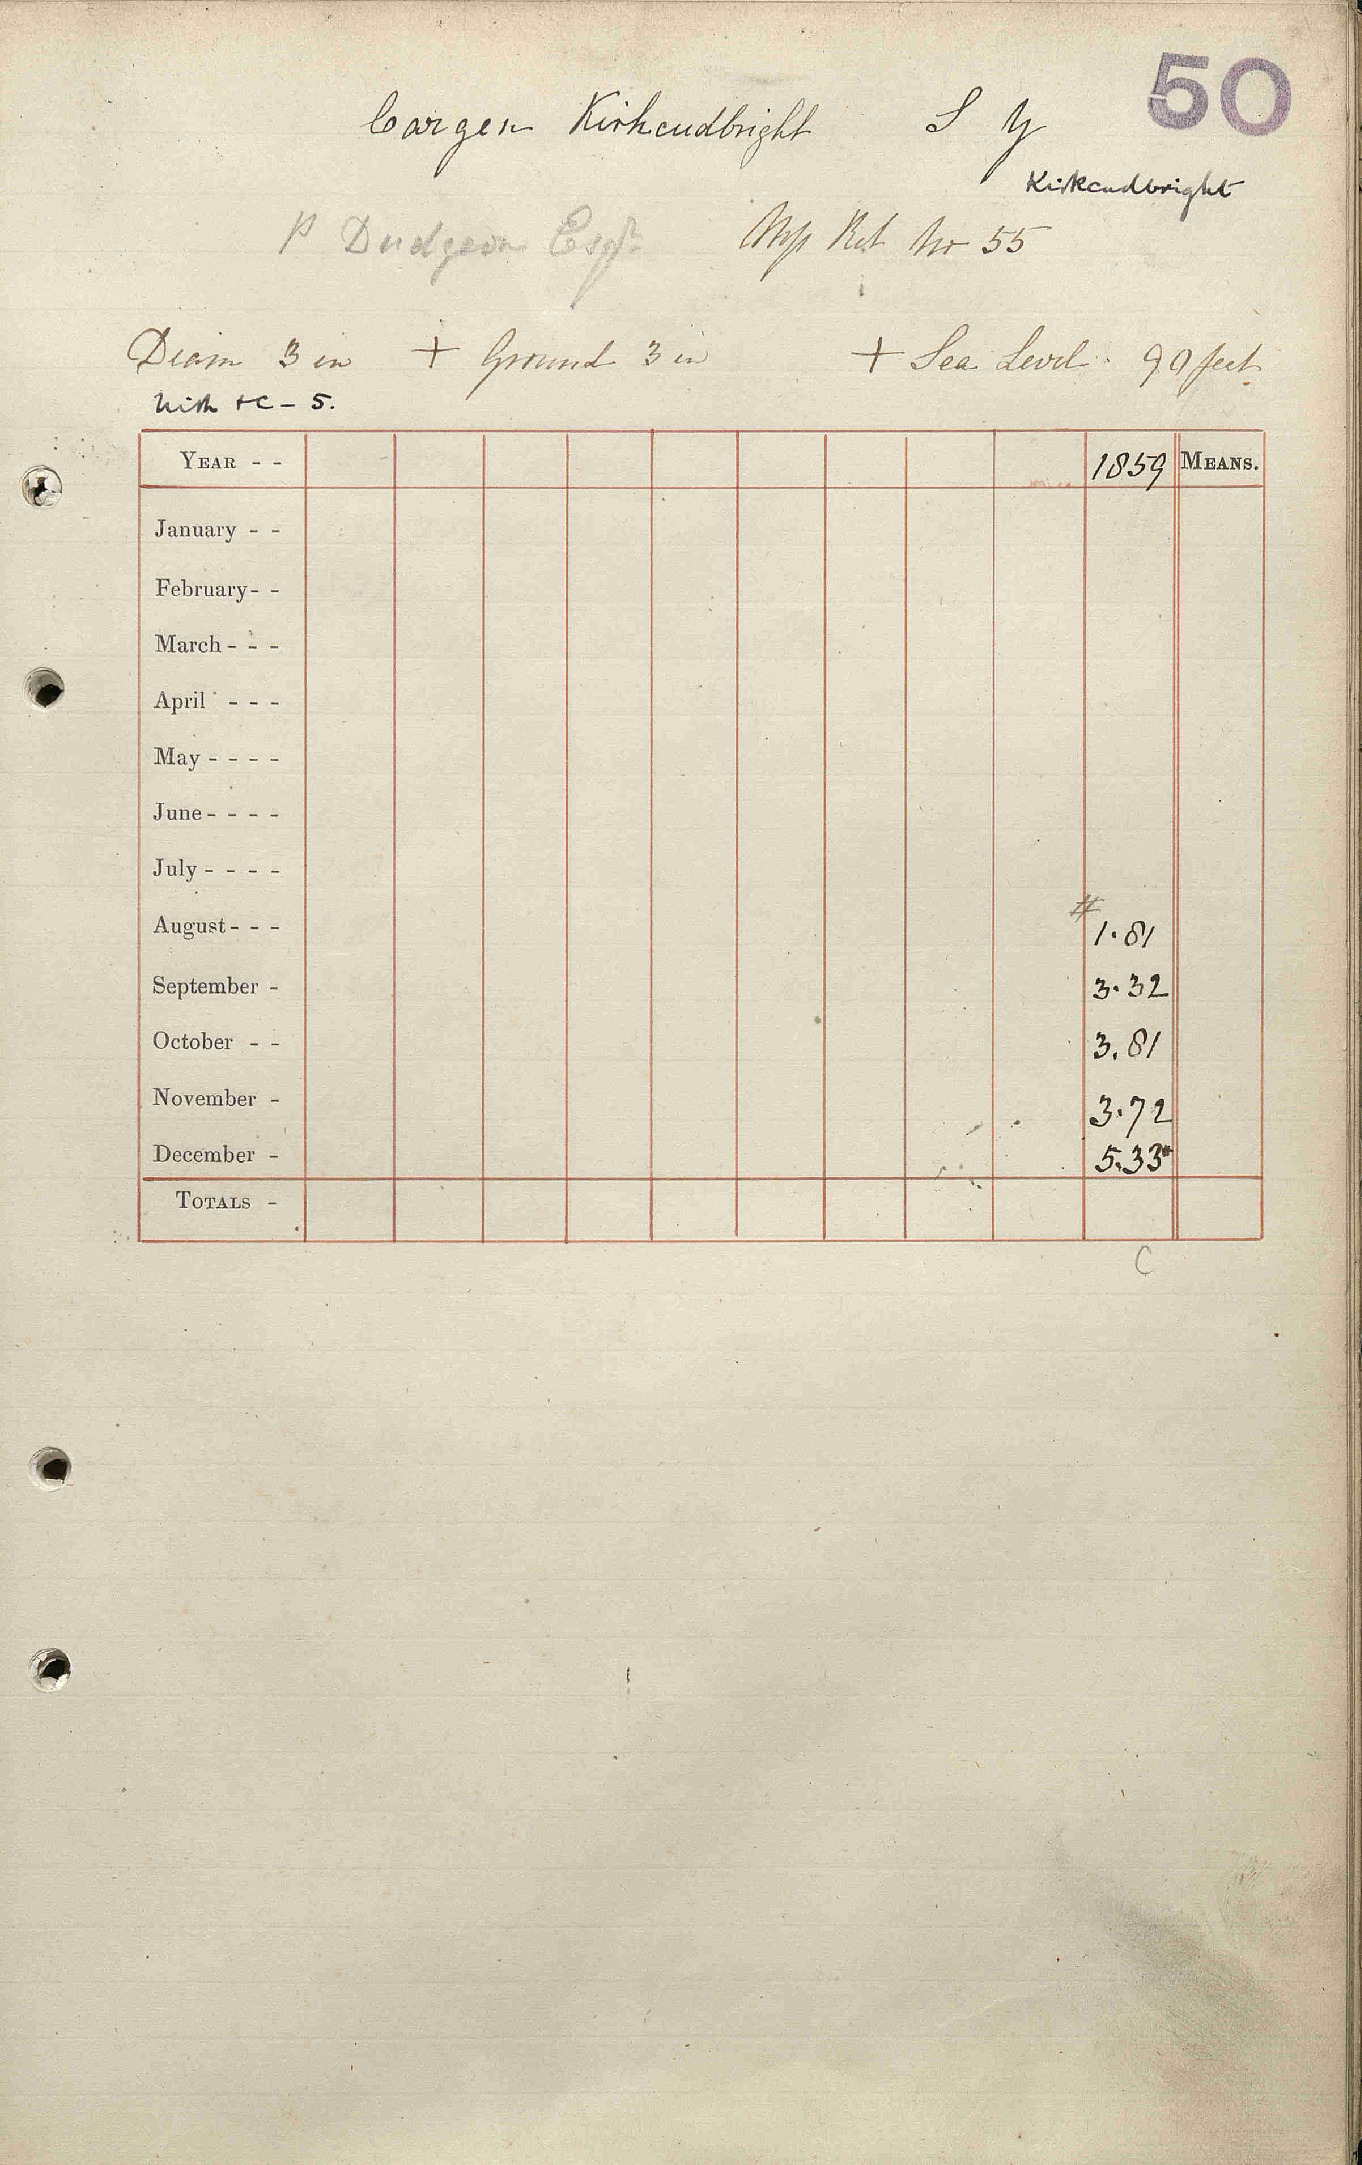 50
Cargen Kirkcudbright S Y
Kirkcudbright
P Dudgeon Esqr Ret No 55
Diam 3 in + Ground 3 in + Sea Level 90 feet
5.
YEAR - - 1859 MEANS.
January - -
February - -
March - - -
April - - -
May - - - -
June - - - -
July - - - -
August - - - # 1.81
September - 3.32
October - - 3.81
November - 3.72
December - 5.33
TOTALS -
C